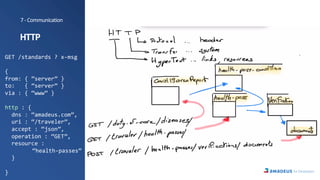 7 - Communication
HTTP
GET /standards ? x-msg
{
from: { "server" }
to: { "server" }
via : { "www" }
http : {
dns : "amadeus.com",
uri : "/traveler",
accept : "json",
operation : "GET",
resource :
"health-passes"
}
}
H T T P
Protocol ... header
Transfer ... system
HyperText ... links, resources
health-pass-condition
health-pass
Verification
documents
GET / duty-of-care / diseases /
GET / traveler / health-passes /
POST / traveler / health-passes / verifications / documents
amadeus